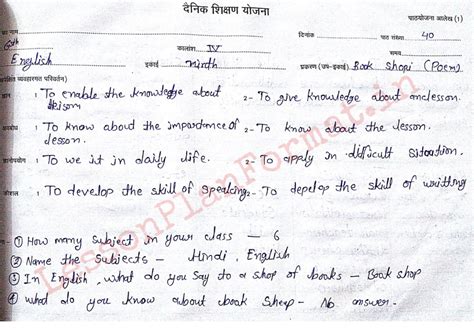 दैनिक शिक्षण योजना
पाठयोजना आलेख (1)
नाम
कालांश IV
दिनांक
पाठ संख्या 40
English
इकाई ninth
समय
प्रकरण (उप-इकाई) Book Shopi (Poem)
व्यवहारगत परिवर्तन)
ज्ञान : To enable the knowledge about 2- To give knowledge about
अवबोध : To know about the importance of 2- To know about the lesson.
lesson.
ज्ञानोपयोग : To we it in daily life. 2- To apply in difficult situation.
कौशल : To develop the skill of speaking 2- To depelop the skill of writting
LessonPlanFormat.in
① How many subject in your class - 6
② Name the subjects - Hindi, English
③ In English, what do you say to a shop of books - Book shop
④ what do you know about book - No answer.